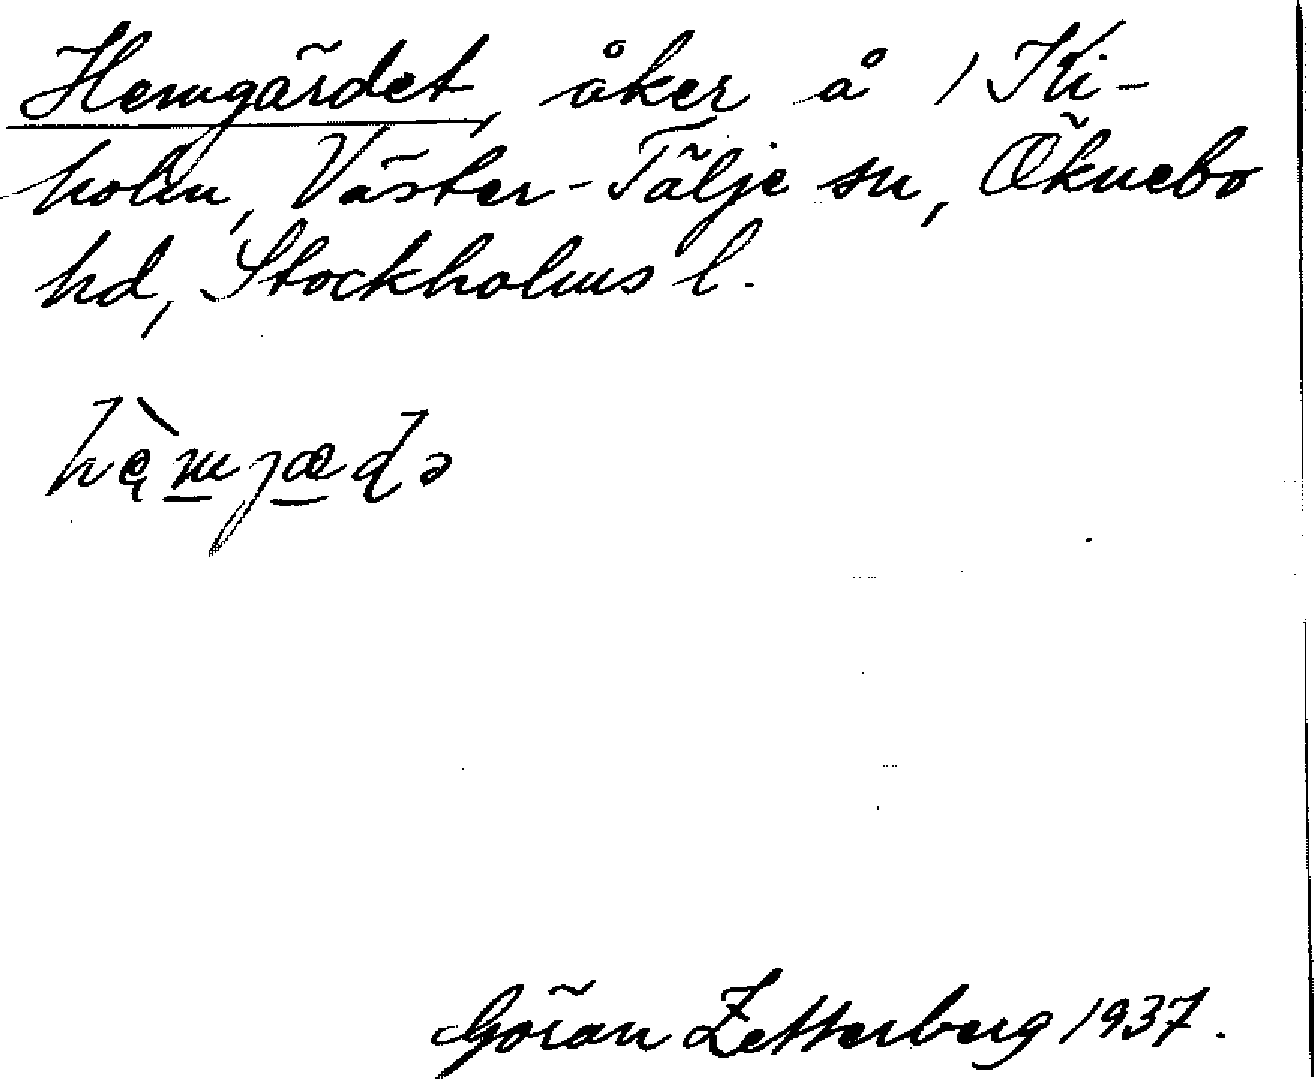 Hemgärdet, åker å 1 Ki-
holm, Väster-Tälje sn, Öknebo
hd, Stockholms l.
hę̀mjæɖə
Göran Zetterberg 1937.